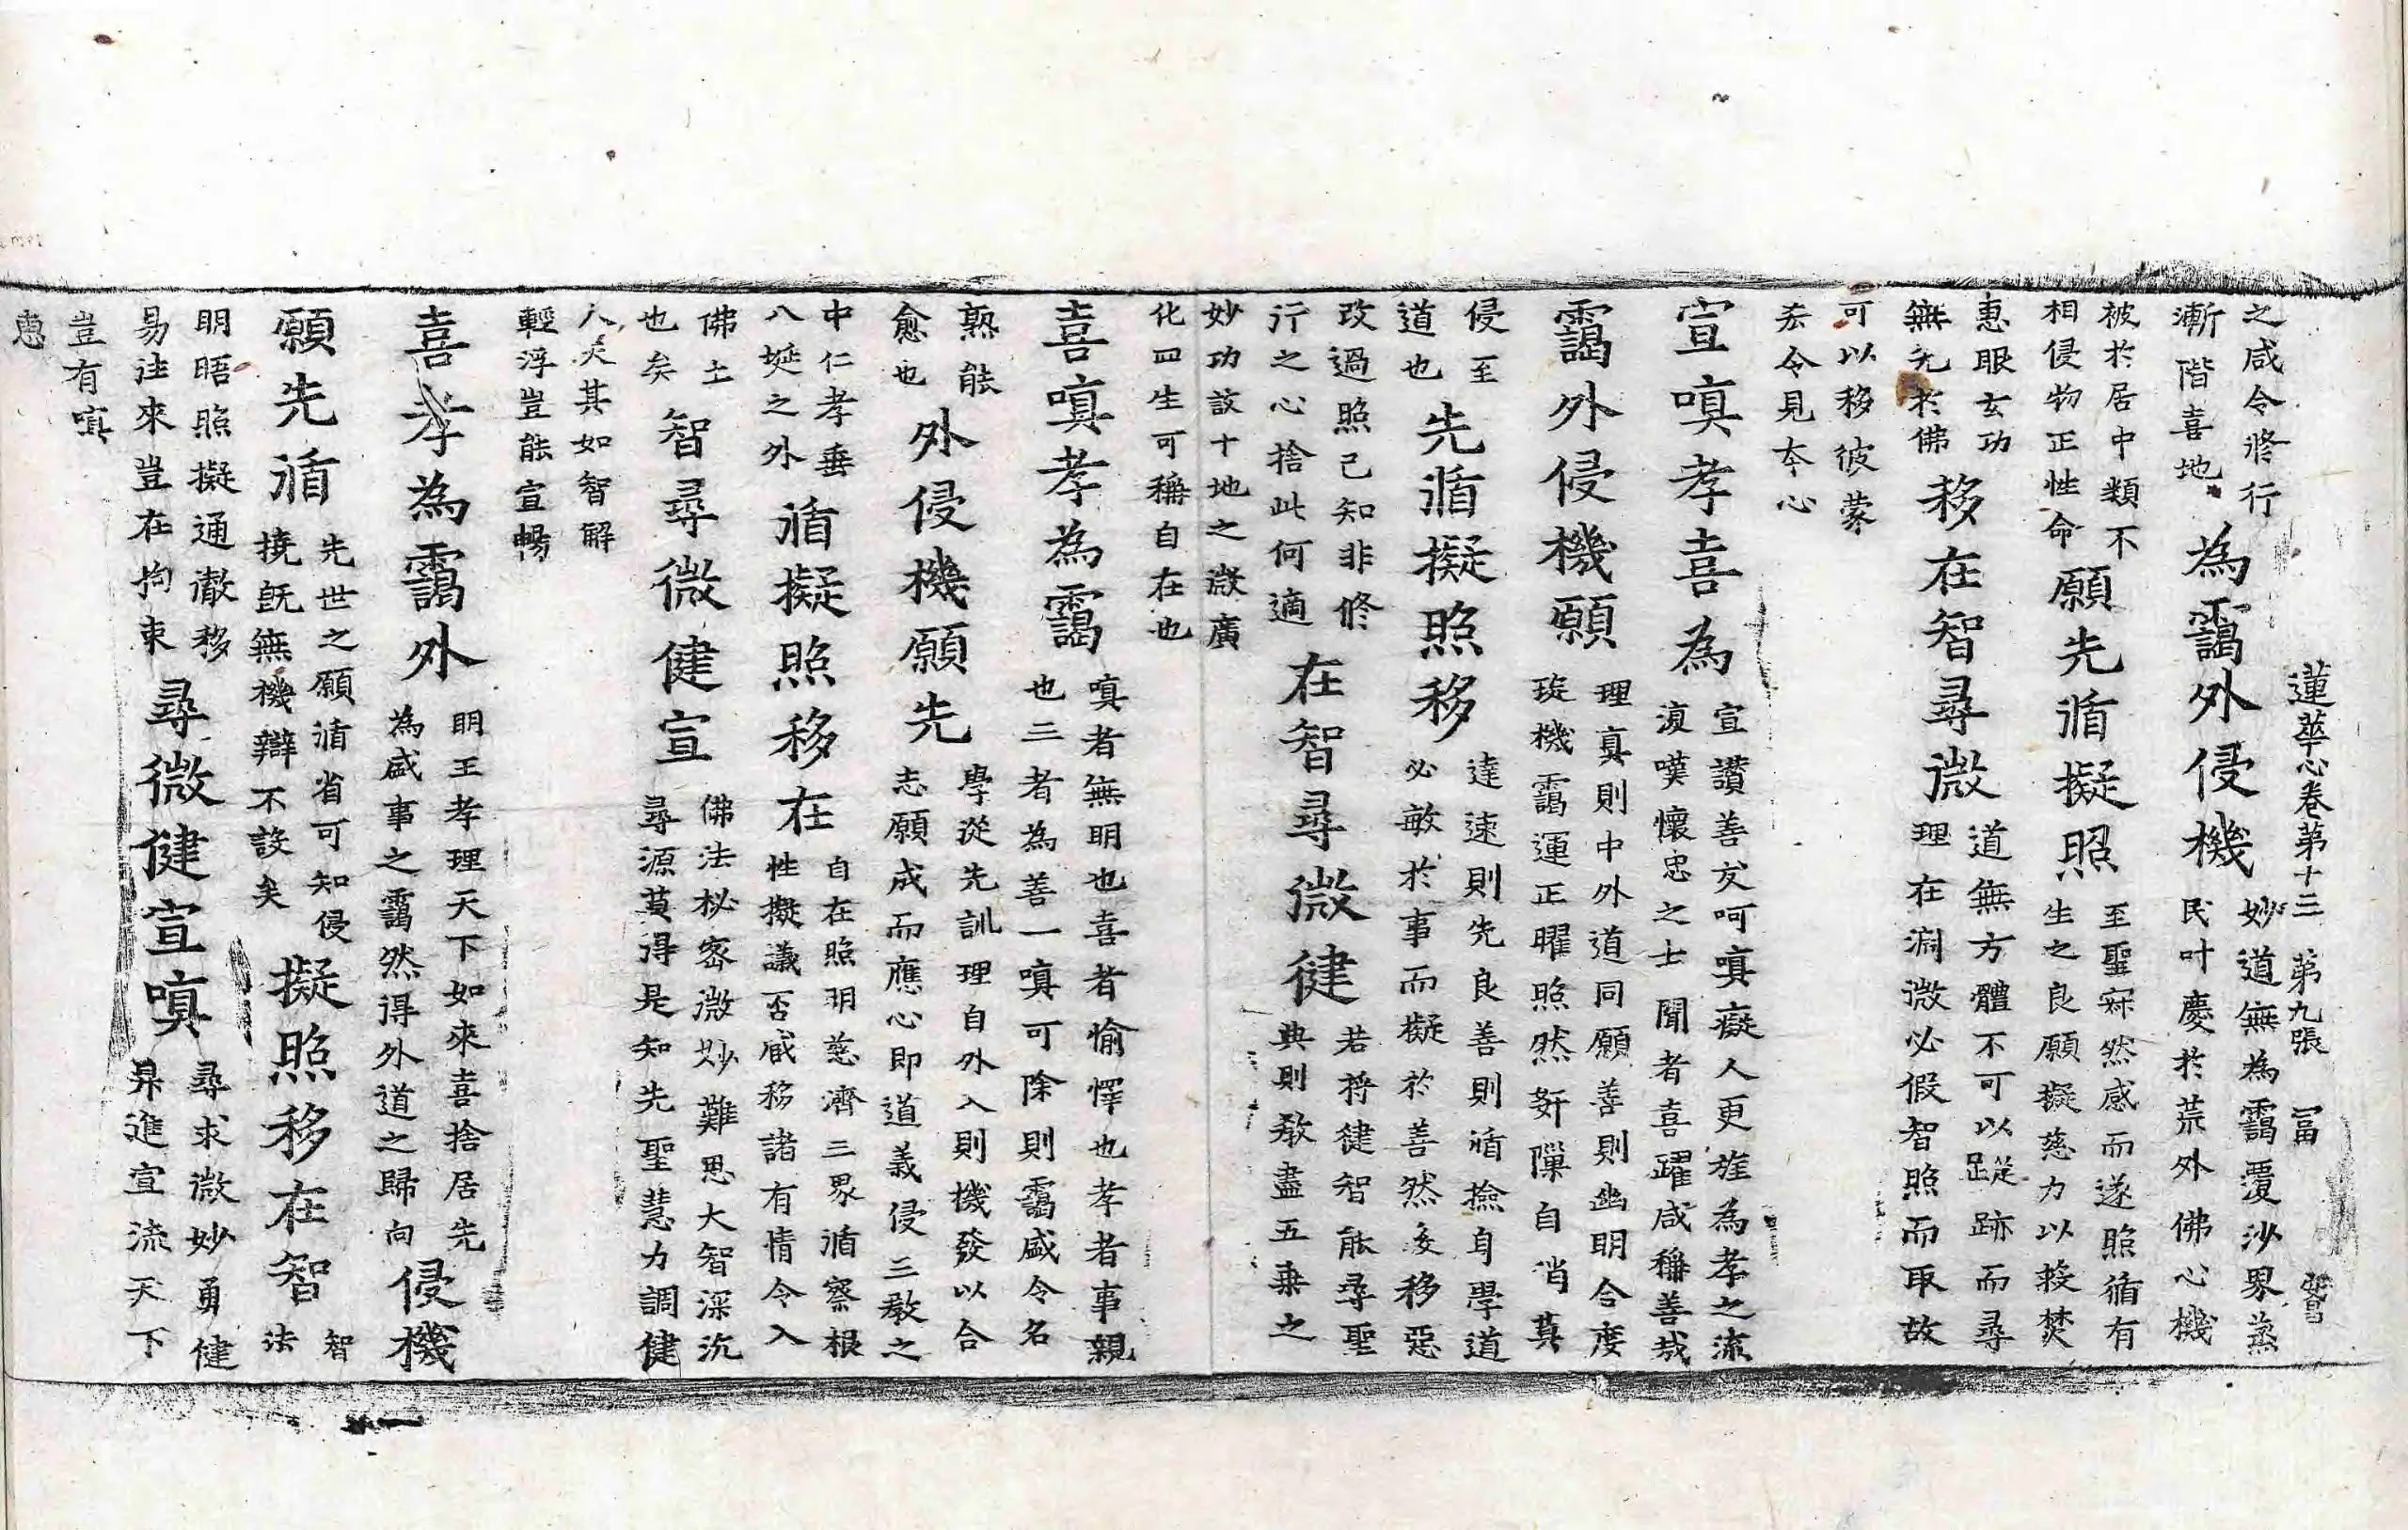 蓮華心卷第十三　第九張　冨
之咸令修行
漸階喜地
為靄外侵機
妙道無為靄覆沙界蒸
民叶慶於荒外佛心機
被於居中類不
相侵物正性命
願先循擬照
至聖寂然感而遂照循有
生之良願擬慈力以救焚
惠眼玄功
無先於佛
移在智尋微
道無方體不可以蹤跡而尋
理在淵微必假智照而取故
可以移彼蒙
令見本心
宣嗔孝喜為
宣讚善友呵嗔癡人更旌為孝之流
復嘆懷忠之士聞者喜躍咸稱善哉
靄外侵機願
理真則中外道同願善則幽明合度
璇機靄運正曜照然姧自消莫
侵至
道也
先循擬照移
達速則先良善則循撿身學道
必敏於事而擬於善然後移惡
改過照己知非修
行之心捨此何適
在智尋微健
若將健智能尋聖
典則教盡五乘之
妙功該十地之微廣
化四生可稱自在也
喜嗔孝為靄
嗔者無明也喜者愉懌也孝者事親
也三者為善一嗔可除則靄盛令名
熟能
愈也
外侵機願先
學從先訓理自外入則機發以合
志願成而應心即道義侵三教之
中仁孝垂
八埏之外
循擬照移在
自在照明慈濟三界循察根
性擬議否臧移諸有情令入
佛土
也矣
智尋微健宣
佛法秘密微妙難思大智深沉
尋源莫得是知先聖慧力調健
人矣其如智解
輕浮豈能宣暢
喜孝為靄外
明王孝理天下如來喜捨居先
為盛事之靄然得外道之歸向
侵機
願先循
先世之願循省可知侵
撓旣無機辯不設矣
擬照移在智
智
法
明晤照擬通徹移
易往來豈在拘束
尋微健宣嗔
尋求微妙勇健
昇進宣流天下
豈有嗔
恚